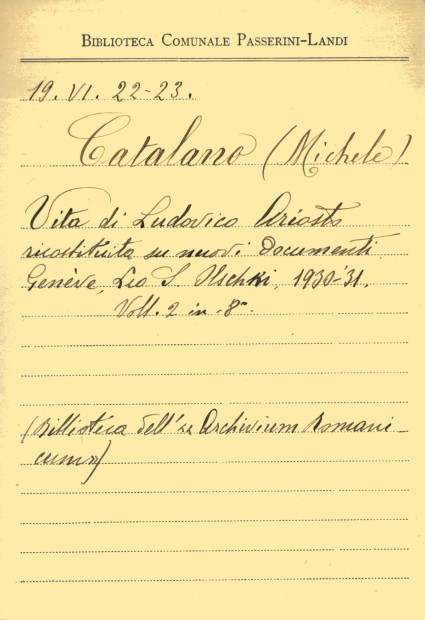 BIBLIOTECA COMUNALE PASSERINI-LANDI
19. VI. 22-23.
Catalano (Michele)
Vita di Ludovico Ariosto
ricostituita su nuovi documenti
Genève, Leo S. Olschki, 1930-'31.
Voll. 2 in -8º
(Biblioteca dell'« Archivium Romani-
cum»)